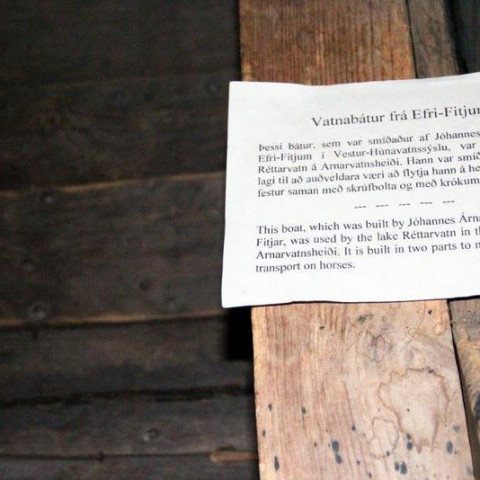 Vatnabátur frá Efri-Fitjum
Þessi bátur, sem var smíðaður af Jóhannes
Efri-Fitjum í Vestur-Húnavatnssýslu, var
Réttarvatn á Arnarvatnsheiði. Hann var
lagi til að auðveldara væri að flytja hann á
festur saman með skrúfbolta og með krókum
--- --- --- --- ---
This boat, which was built by Jóhannes
Fitjar, was used by the lake Réttarvatn in
Arnarvatnsheiði. It is built in two parts to
transport on horses.